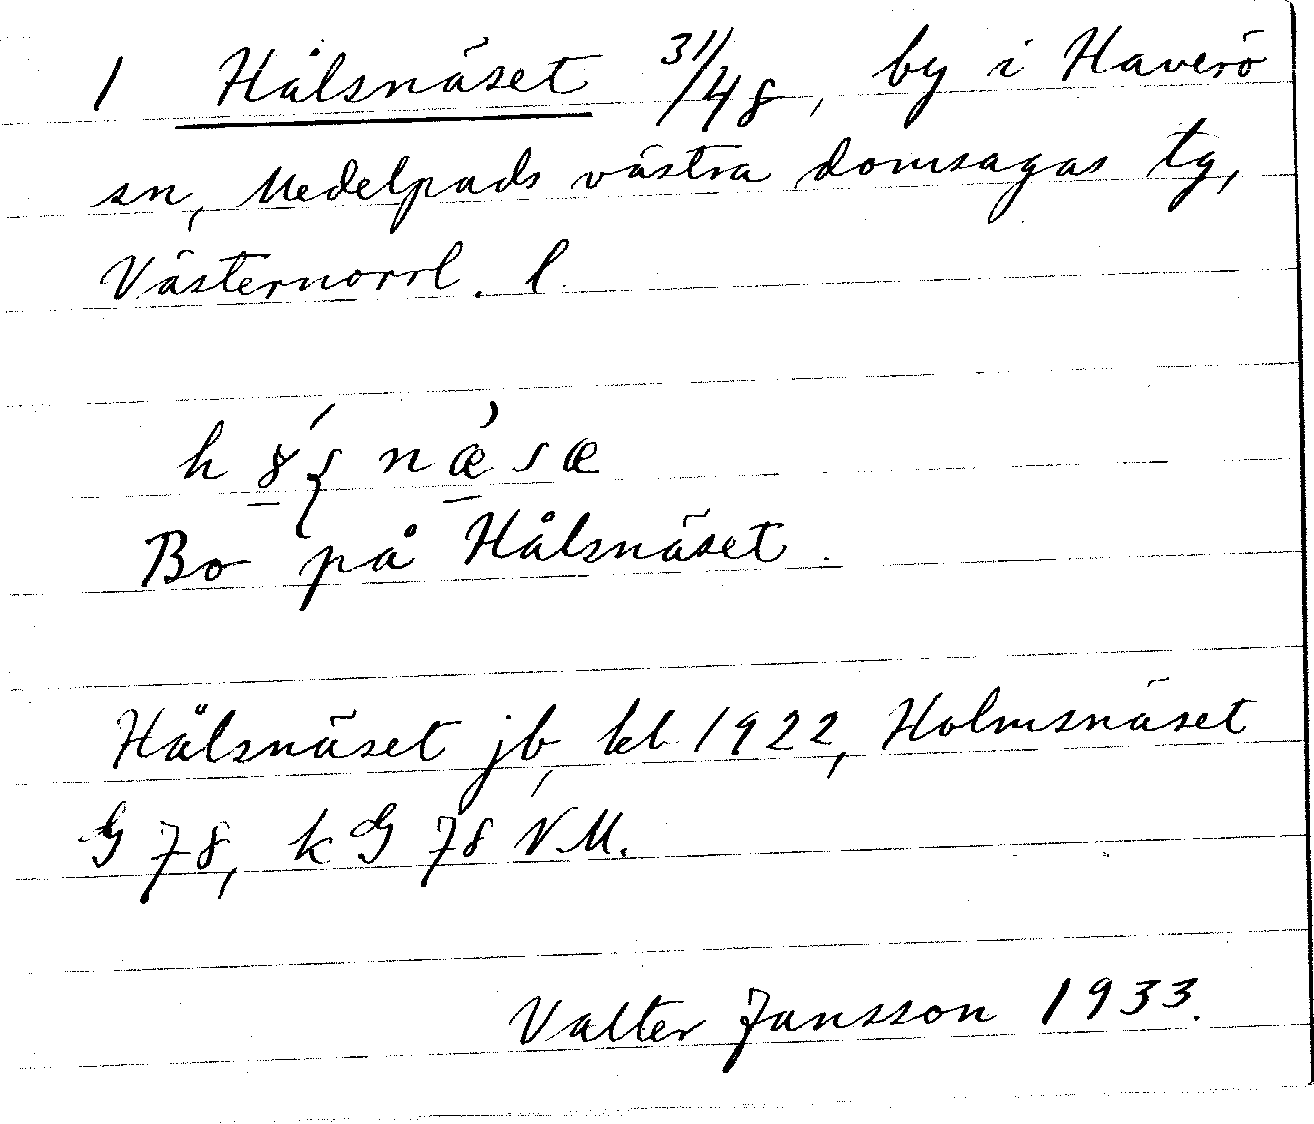 1 Hålsnäset 31/48, by i Haverö
sn, Medelpads västra domsagas tg,
Västernorrl. l.
Bo på Hålsnäset.
Hålsnäset jb, kb 1922, Holmsnäset
G 78, k G 78 N.M.
Valter Jansson 1933.